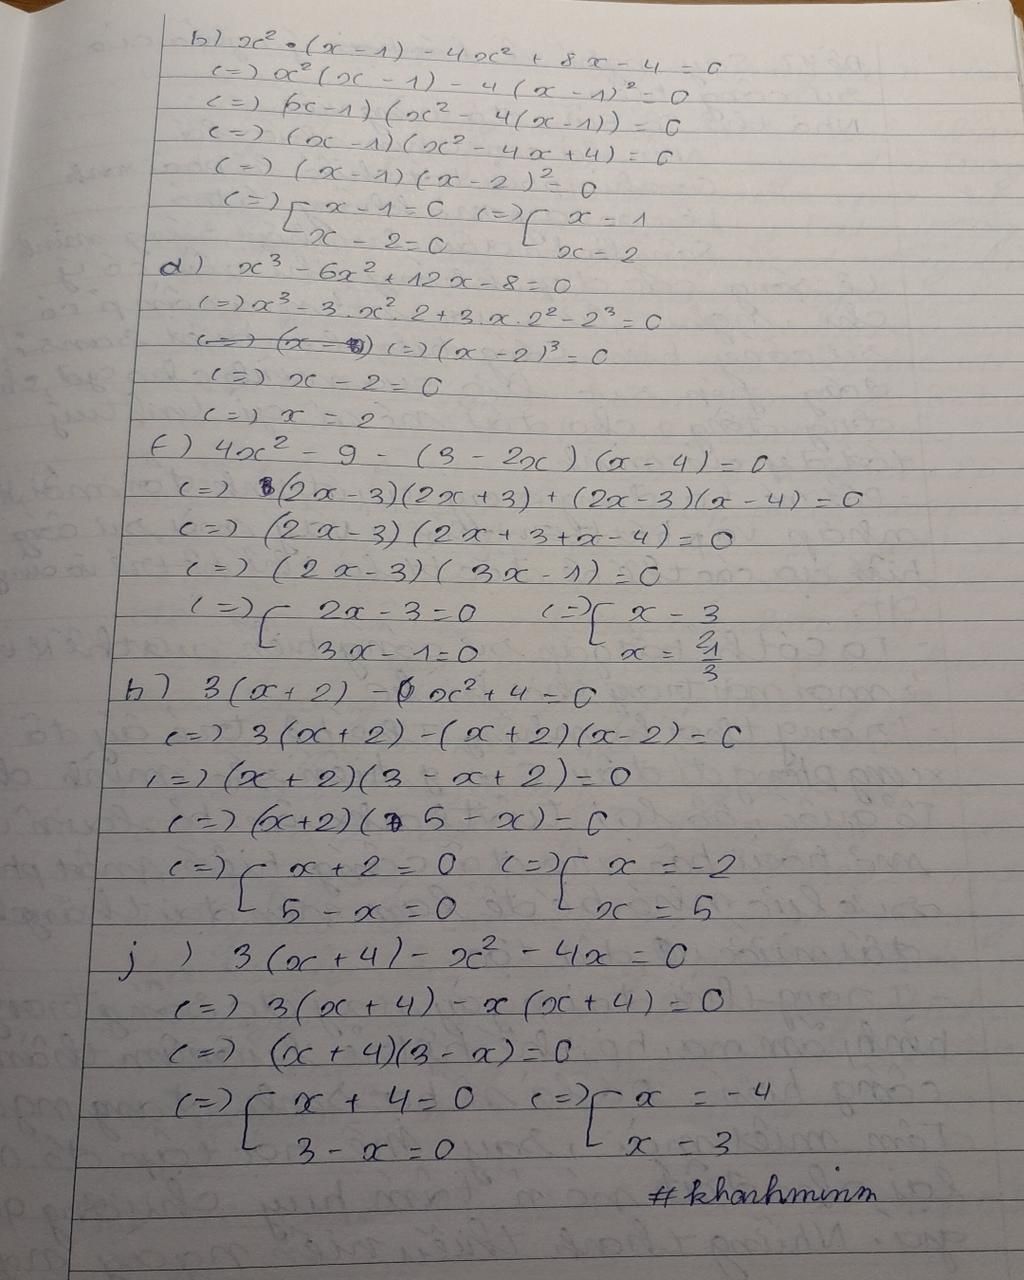 b) x² . (x - 1) - 4x² + 8x - 4 = 0
(=) x² (x - 1) - 4 (x - 1)² = 0
(=) (x - 1) (x² - 4(x - 1)) = 0
(=) (x - 1) (x² - 4x + 4) = 0
(=) (x - 1) (x - 2)² = 0
(=) [ x - 1 = 0 (=) [ x = 1
x - 2 = 0 x = 2
d) x³ - 6x² + 12x - 8 = 0
(=) x³ - 3 . x² . 2 + 3 . x . 2² - 2³ = 0
(=) (x - 2)³ = 0
(=) x - 2 = 0
(=) x = 2
f) 4x² - 9 - (3 - 2x) (x - 4) = 0
(=) (2x - 3)(2x + 3) + (2x - 3)(x - 4) = 0
(=) (2x - 3) (2x + 3 + x - 4) = 0
(=) (2x - 3) (3x - 1) = 0
(=) [ 2x - 3 = 0 (=) [ x = 3/2
3x - 1 = 0 x = 1/3
h) 3(x + 2) - x² + 4 = 0
(=) 3(x + 2) - (x + 2)(x - 2) = 0
(=) (x + 2)(3 - x + 2) = 0
(=) (x + 2) (5 - x) = 0
(=) [ x + 2 = 0 (=) [ x = -2
5 - x = 0 x = 5
j) 3(x + 4) - x² - 4x = 0
(=) 3(x + 4) - x(x + 4) = 0
(=) (x + 4)(3 - x) = 0
(=) [ x + 4 = 0 (=) [ x = -4
3 - x = 0 x = 3
#khanhminh